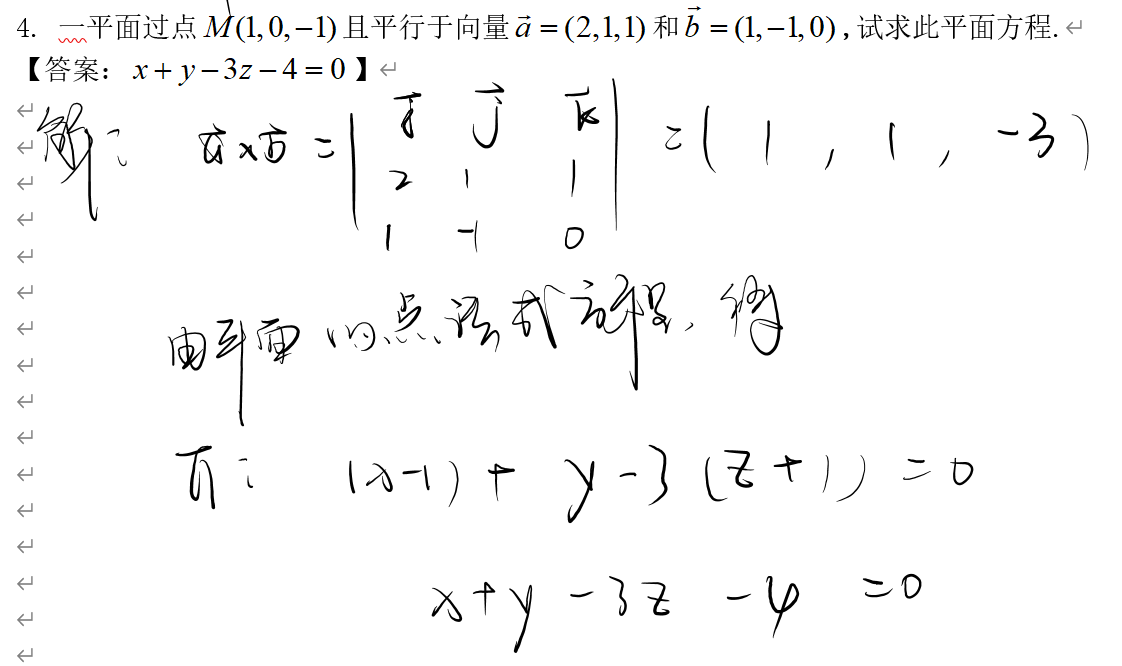 4. 一平面过点 M(1,0,−1) 且平行于向量 a⃗ = (2,1,1) 和 b⃗ = (1,−1,0) ,试求此平面方程.
【答案: x + y − 3z − 4 = 0 】
解: a⃗ × b⃗ = | i⃗ j⃗ k⃗ | = ( 1 , 1 , −3 )
2 1 1
1 −1 0
由平面的点法式方程,得
π: (x−1) + y − 3 (z+1) = 0
x + y − 3z − 4 = 0